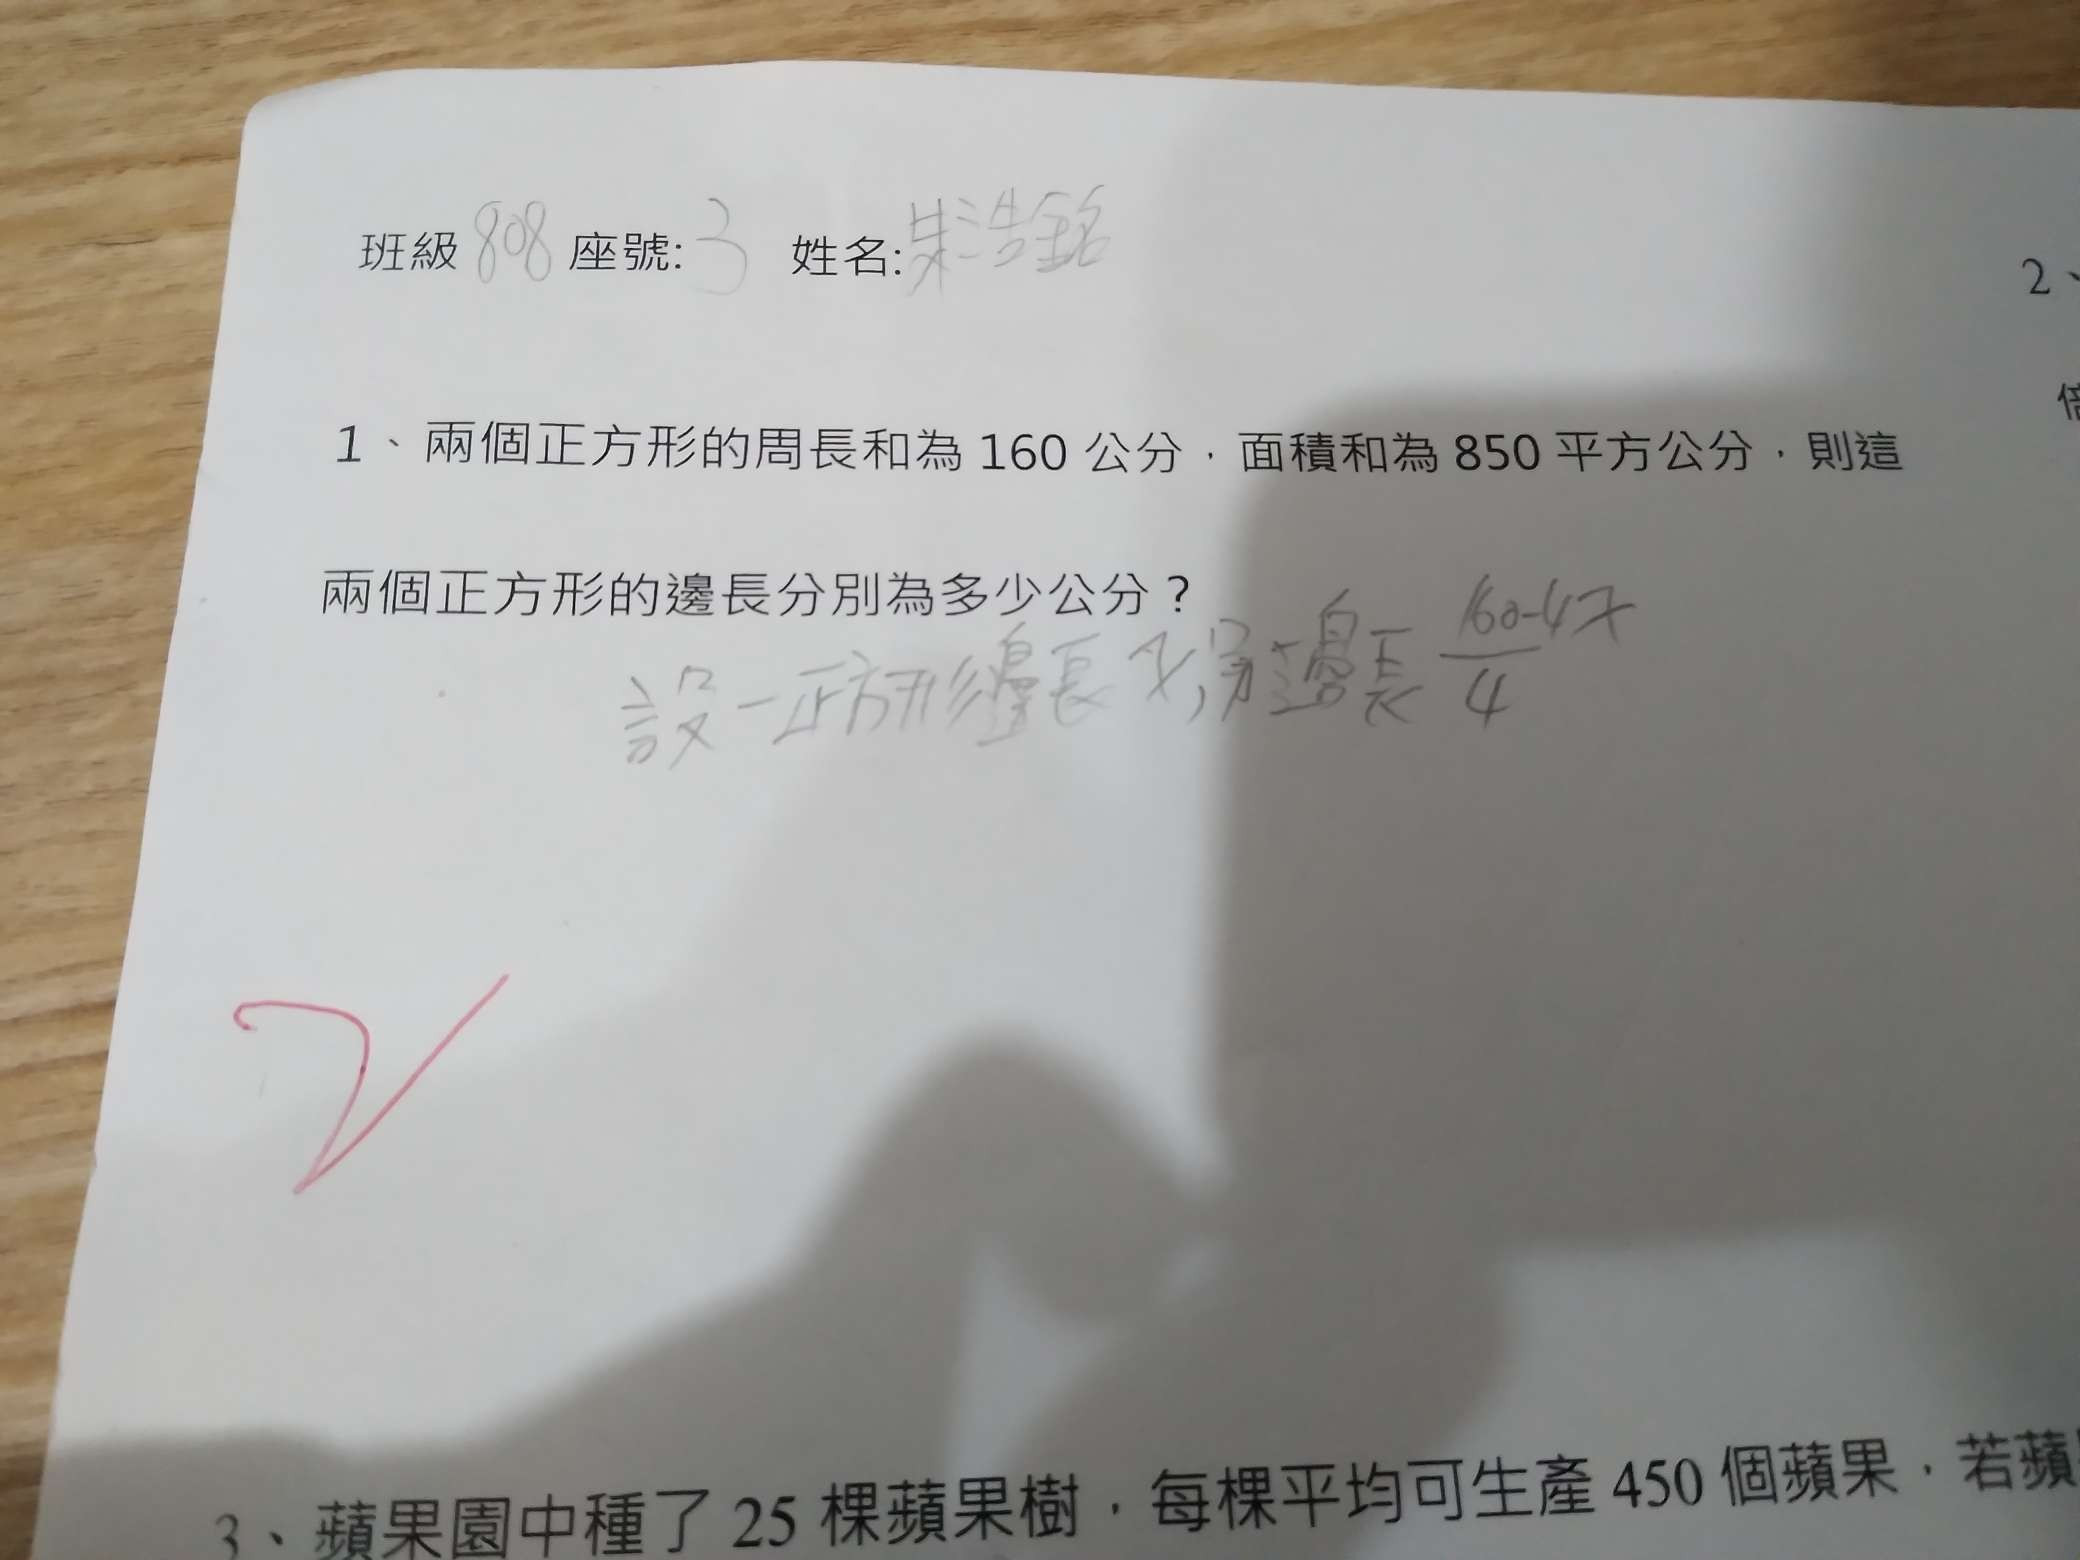 班級 808 座號: 3 姓名: 朱浩銘
2、
倍
1、兩個正方形的周長和為 160 公分，面積和為 850 平方公分，則這
兩個正方形的邊長分別為多少公分？
設一正方形邊長 x, 另一邊長 160-4x
4
3、蘋果園中種了 25 棵蘋果樹，每棵平均可生產 450 個蘋果，若蘋